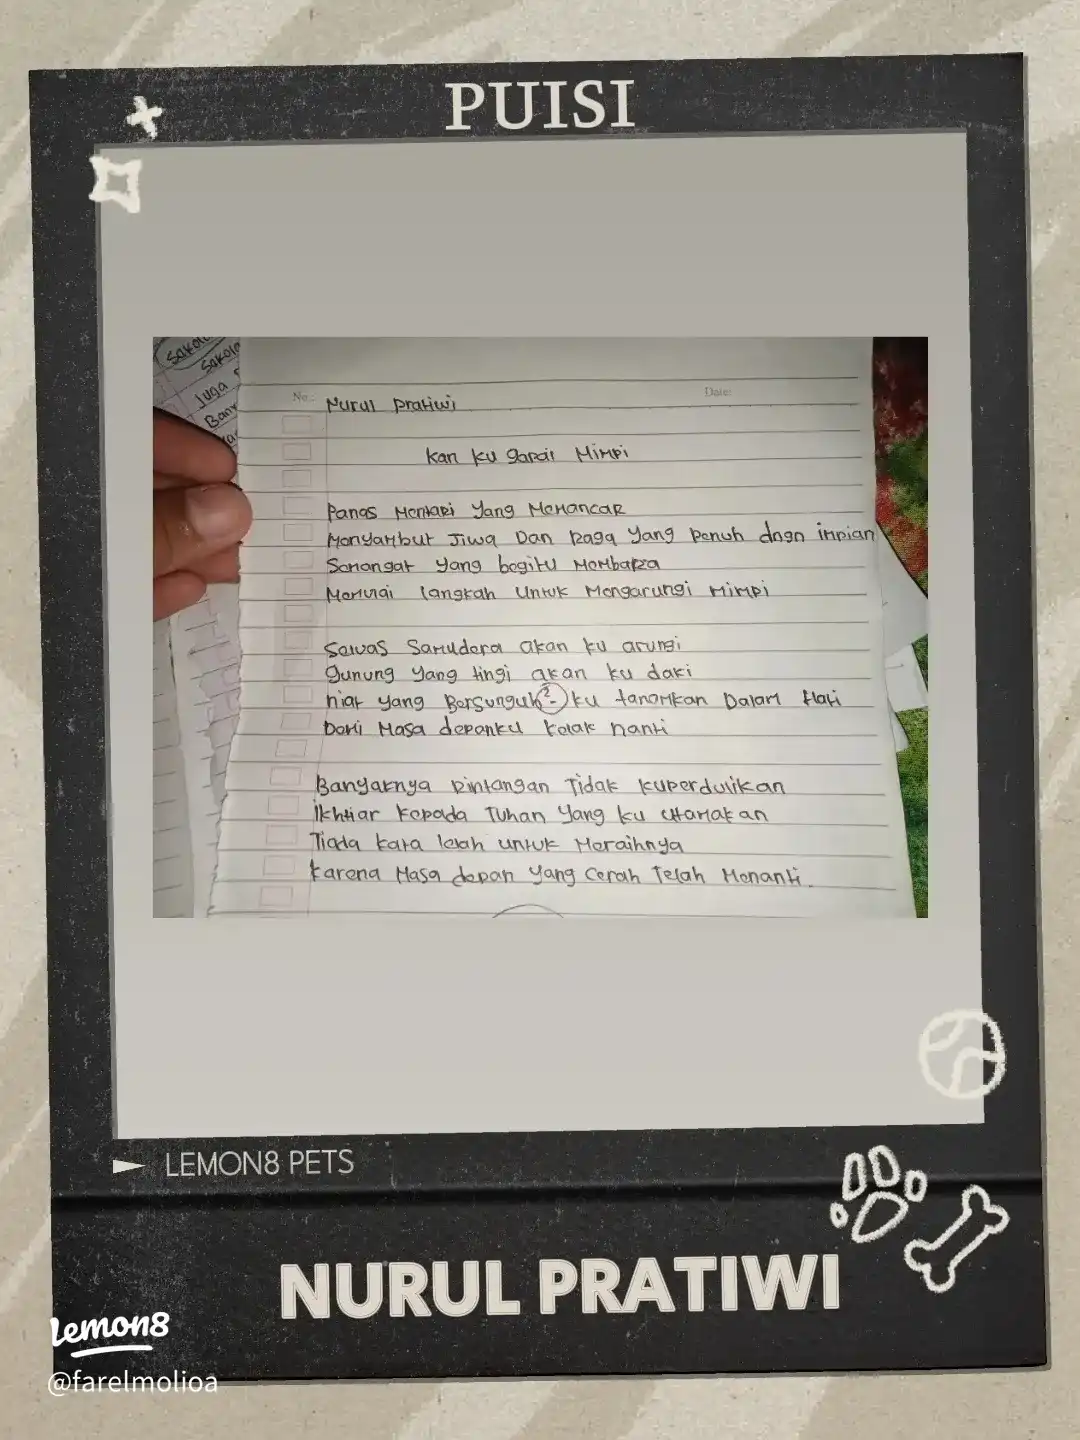 PUISI
Sakola
Sakola
Juga
Bany
No.:
Date:
Nurul pratiwi
kan ku gapai Mimpi
Panas Mentari Yang Memancar
Menyambut Jiwa Dan Raga Yang Penuh dngn impian
Semangat Yang begitu Membara
Memulai langkah Untuk Mengarungi Mimpi
Seluas Samudera akan ku arungi
gunung Yang tingi akan ku daki
niat yang Bersunguh²- ku tanamkan Dalam Hati
Demi Masa depanku kelak nanti
Banyaknya Rintangan Tidak kuperdulikan
Ikhtiar kepada Tuhan Yang ku utamakan
Tiada kata lelah untuk Meraihnya
karena Masa depan Yang cerah Telah Menanti.
LEMON8 PETS
NURUL PRATIWI
Lemon8
@farelmolioa